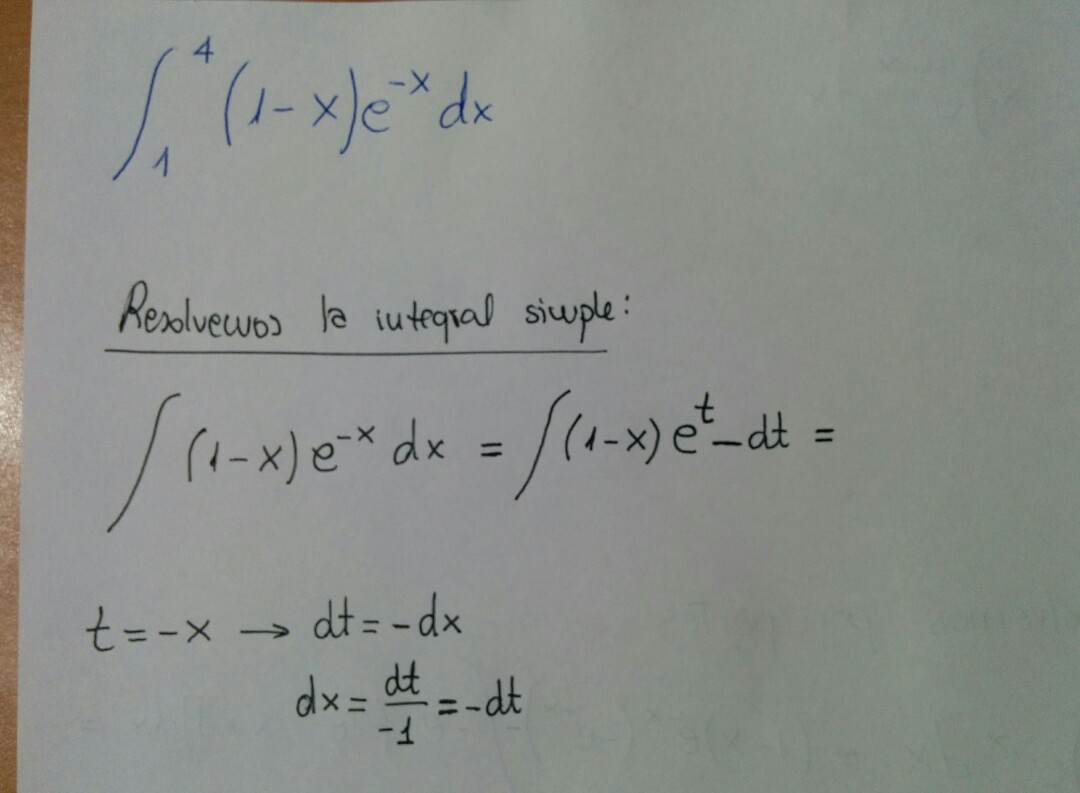 ∫₁⁴ (1-x)e⁻ˣ dx
Resolvemos la integral simple:
∫(1-x) e⁻ˣ dx = ∫(1-x) eᵗ -dt =
t = -x → dt = -dx
dx = dt/-1 = -dt